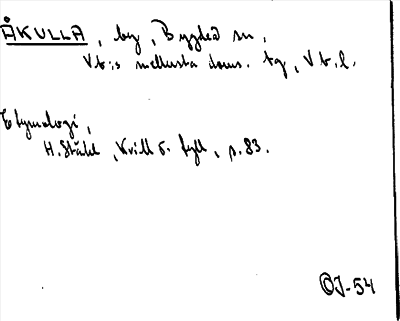 ÅKULLA, by, Bygdeå sn,
Vb:s mellersta doms. tg, Vb.l.
Etymologi,
H. Ståhl, Kvill o. fyll, p. 83.
OJ-54